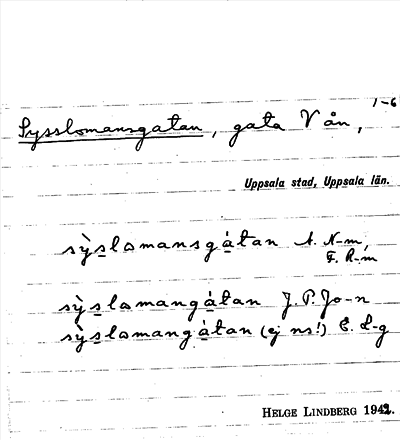 1-6
Sysslomansgatan, gata V ån,
Uppsala stad, Uppsala län.
sỳslomansgàtan A. N-m,
F. R-m
sỳslomangàtan J. P. Jo-n
sỳslomangàtan (ej ns!) E. L-g
HELGE LINDBERG 1942.